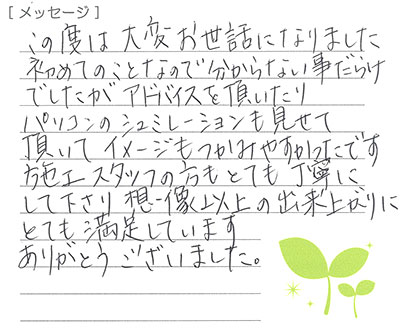 [メッセージ]
この度は大変お世話になりました
初めてのことなので分からない事だらけ
でしたがアドバイスを頂いたり
パソコンのシュミレーションも見せて
頂いてイメージもつかみやすかったです
施工スタッフの方もとても丁寧に
して下さり想像以上の出来上がりに
とても満足しています
ありがとうございました。